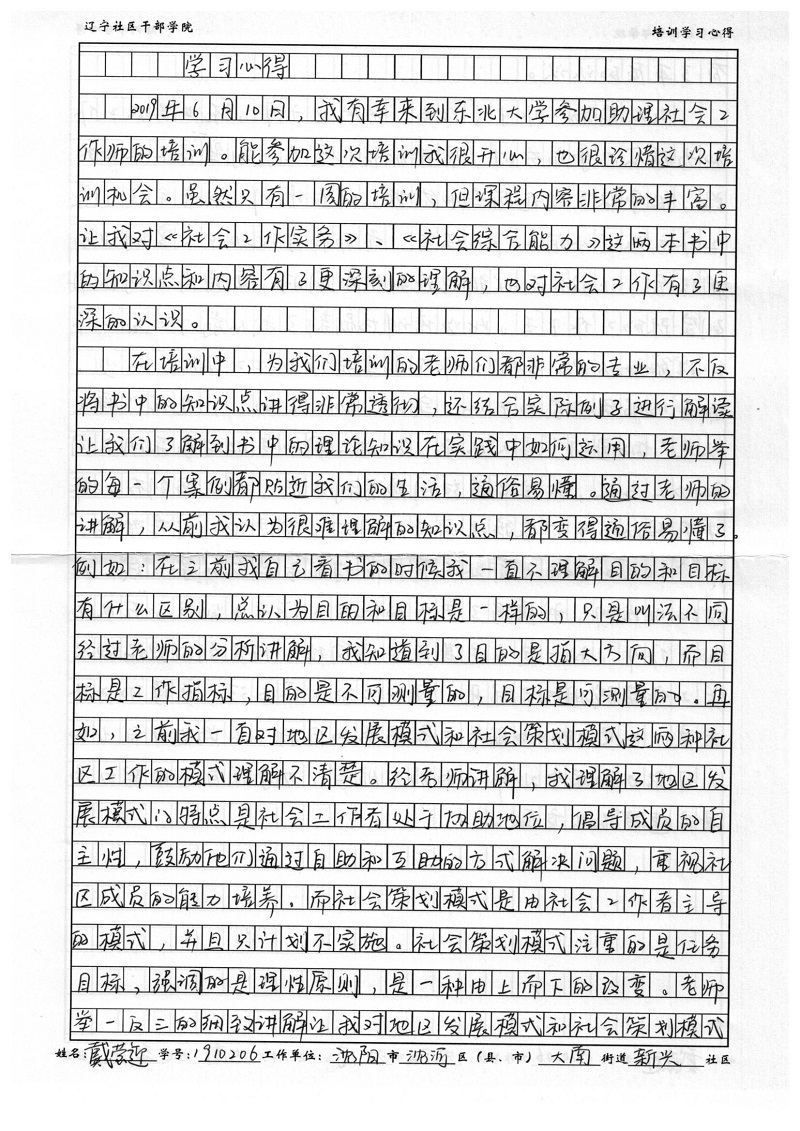 辽宁社区干部学院 培训学习心得
学习心得
2019年6月10日，我有幸来到东北大学参加助理社会工
作师的培训。能参加这次培训我很开心，也很珍惜这次培
训机会。虽然只有一周的培训，但课程内容非常的丰富。
让我对《社会工作实务》、《社会综合能力》这两本书中
的知识点和内容有了更深刻的理解，也对社会工作有了更
深的认识。
在培训中，为我们培训的老师们都非常的专业，不仅
将书中的知识点讲得非常透彻，还结合实际例子进行解读
让我们了解到书中的理论知识在实践中如何运用，老师举
的每一个案例都贴近我们的生活，通俗易懂。通过老师的
讲解，从前我认为很难理解的知识点，都变得通俗易懂了。
例如：在之前我自己看书的时候我一直不理解目的和目标
有什么区别，总认为目的和目标是一样的，只是叫法不同
经过老师的分析讲解，我知道到了目的是指大方向，而目
标是工作指标，目的是不可测量的，目标是可测量的。再
如，之前我一直对地区发展模式和社会策划模式这两种社
区工作的模式理解不清楚。经老师讲解，我理解了地区发
展模式的特点是社会工作者处于协助地位，倡导成员的自
主性，鼓励他们通过自助和互助的方式解决问题，重视社
区成员的能力培养。而社会策划模式是由社会工作者主导
的模式，并且只计划不实施。社会策划模式注重的是任务
目标，强调的是理性原则，是一种由上而下的改变。老师
举一反三的细致讲解让我对地区发展模式和社会策划模式
姓名：戴荣迎 学号：1910206 工作单位：沈阳市沈河区（县、市）大南街道新兴社区